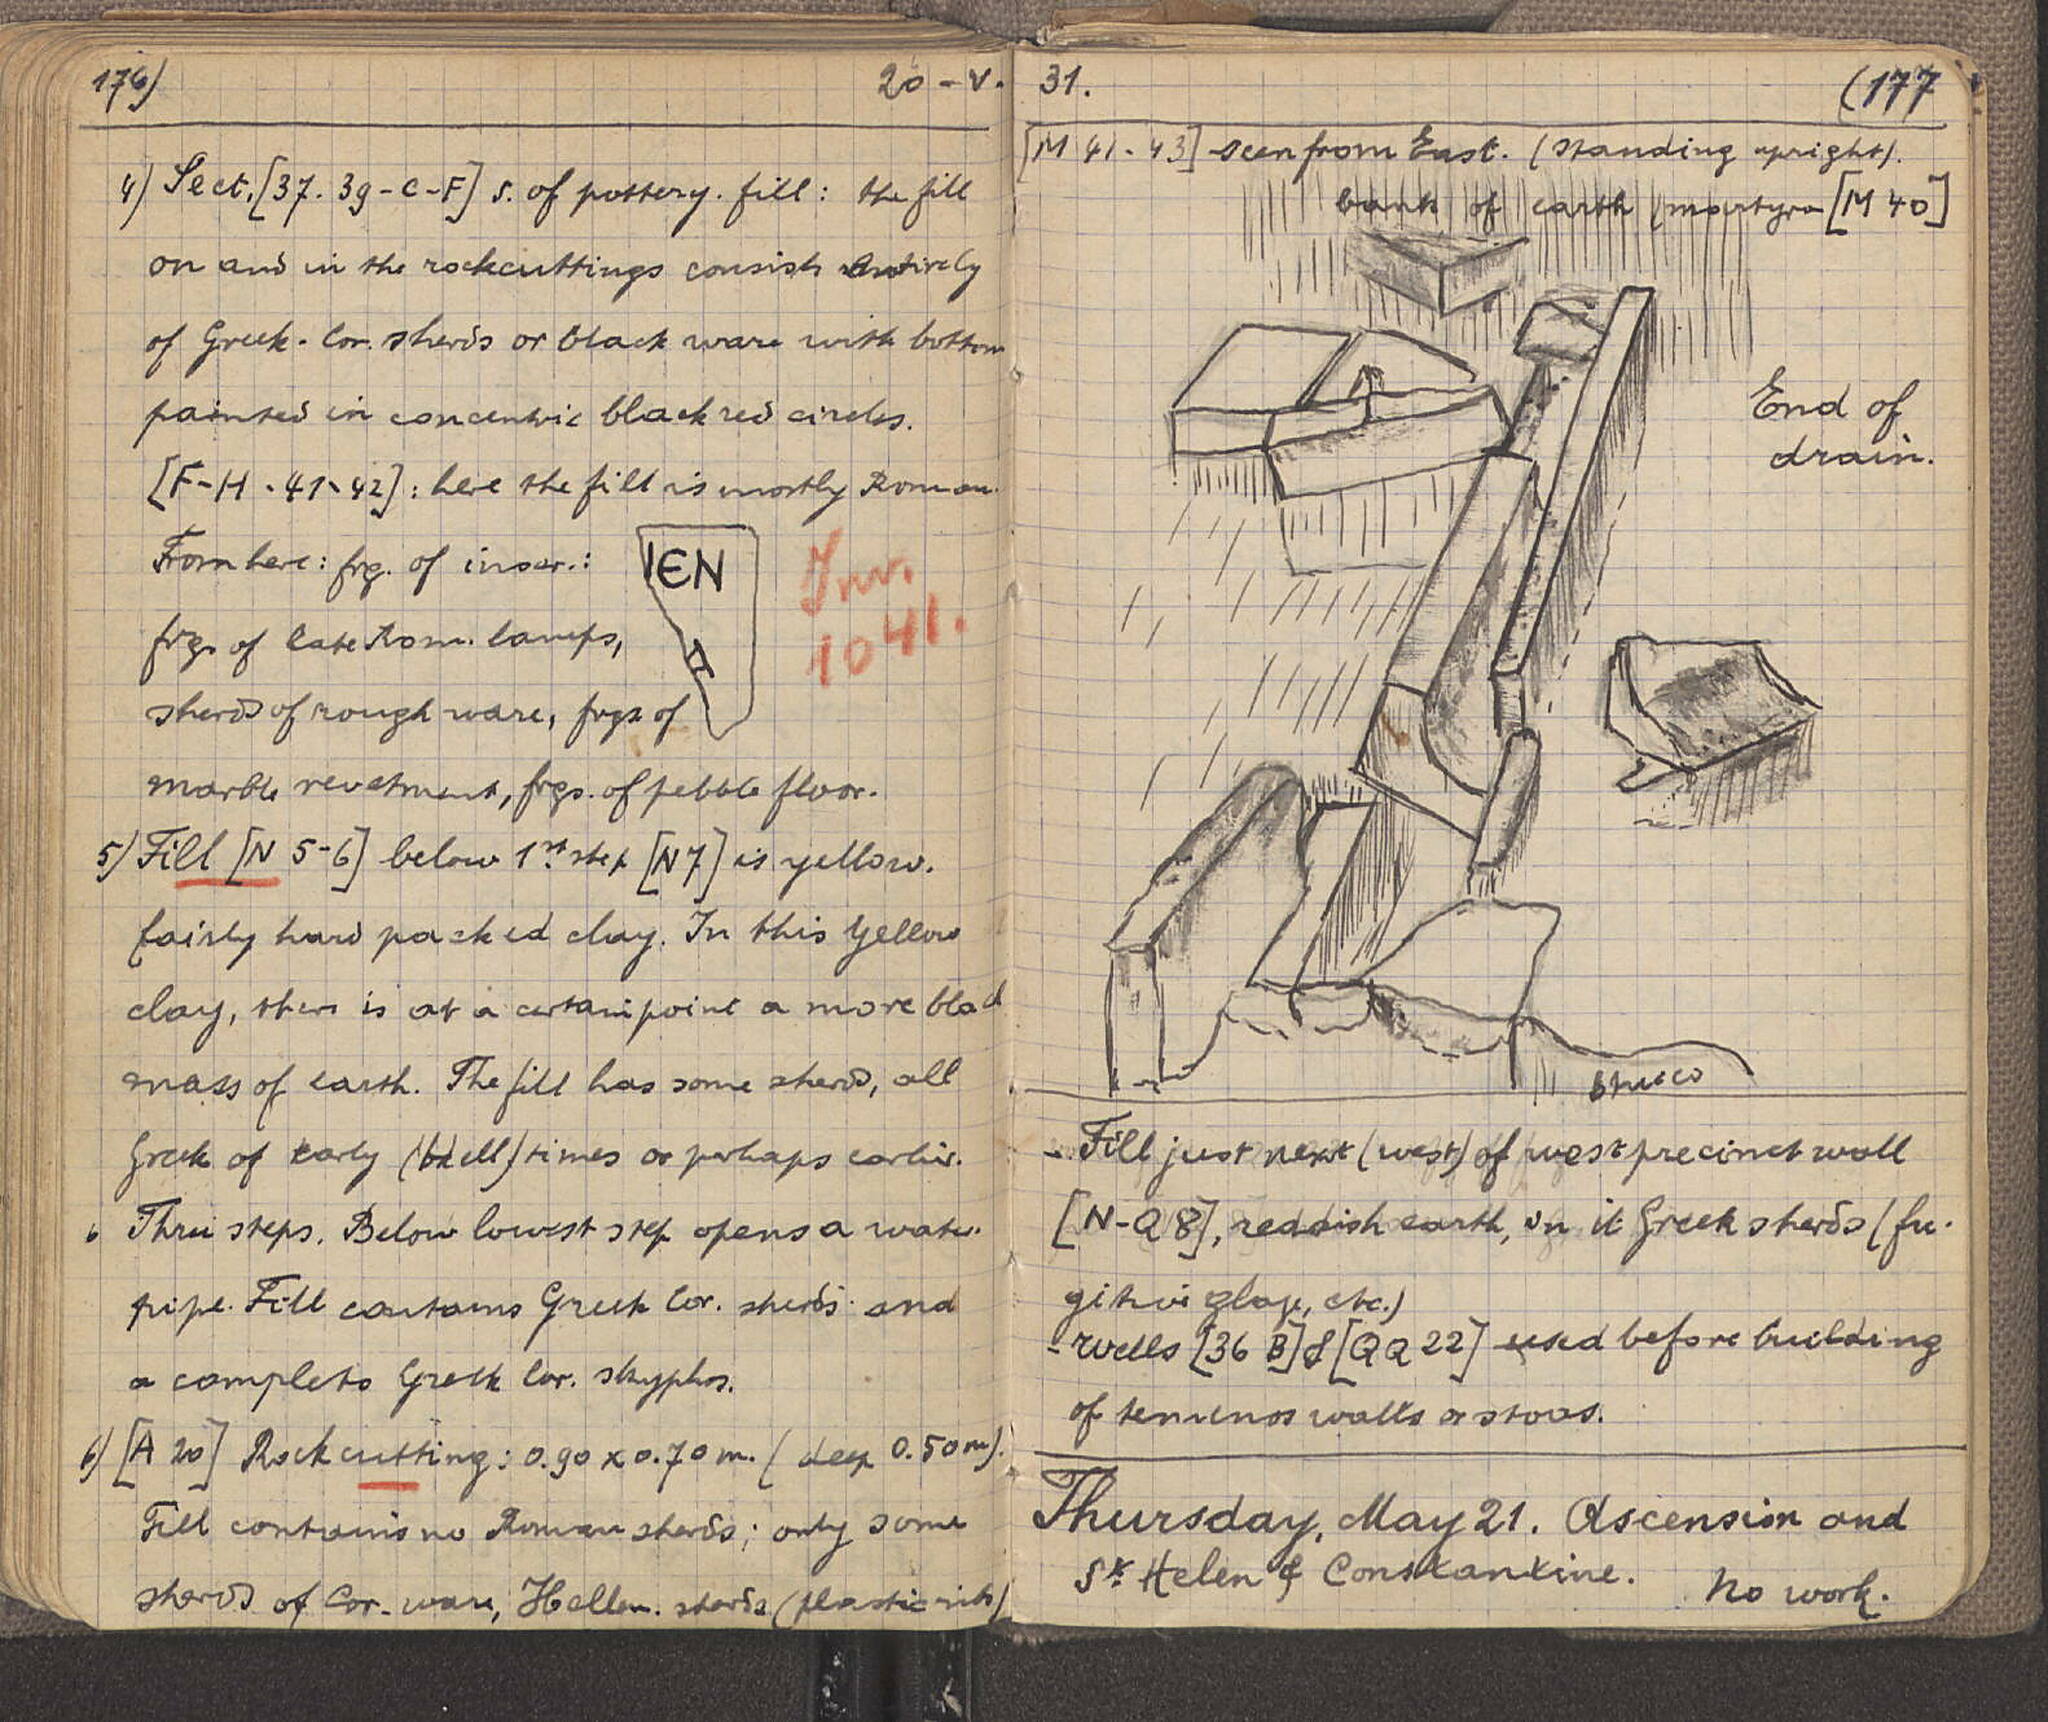 176) 20 - V.
4) Sect. [37. 39 - C - F] S. of pottery. fill: the fill
on and in the rockcuttings consists entirely
of Greek - Cor. sherds or black ware with bottom
painted in concentric black red circles.
[F-H . 41-42]: here the fill is mostly Roman.
From here: frg. of inscr.:
IEN
Inv.
1041.
frgs of late Rom. lamps,
sherds of rough ware, frgs of
marble revetment, frgs. of pebble floor.
5) Fill [N 5-6] below 1st step [N7] is yellow.
fairly hard packed clay. In this yellow
clay, there is at a certain point a more black
mass of earth. The fill has some sherds, all
Greek of early times or perhaps earlier.
Three steps. Below lowest step opens a water-
pipe. Fill contains Greek Cor. sherds and
a complete Greek Cor. skyphos.
6) [A 20] Rock cutting: 0.90 x 0.70 m. (deep 0.50 m).
Fill contains no Roman sherds; only some
sherds of Cor. ware, Hellen. sherds (plastic ribs)
31. (177
[M 41-43] seen from East. (standing upright).
bank of earth (martyra [M 40]
End of
drain.
stucco
- Fill just next (west) of west precinct wall
[N-Q 8], reddish earth, in it Greek sherds (fu-
gitive glaze, etc.)
- Wells [36 B] & [QQ 22] used before building
of temenos walls or stoas.
Thursday, May 21. Ascension and
St. Helen & Constantine.
No work.